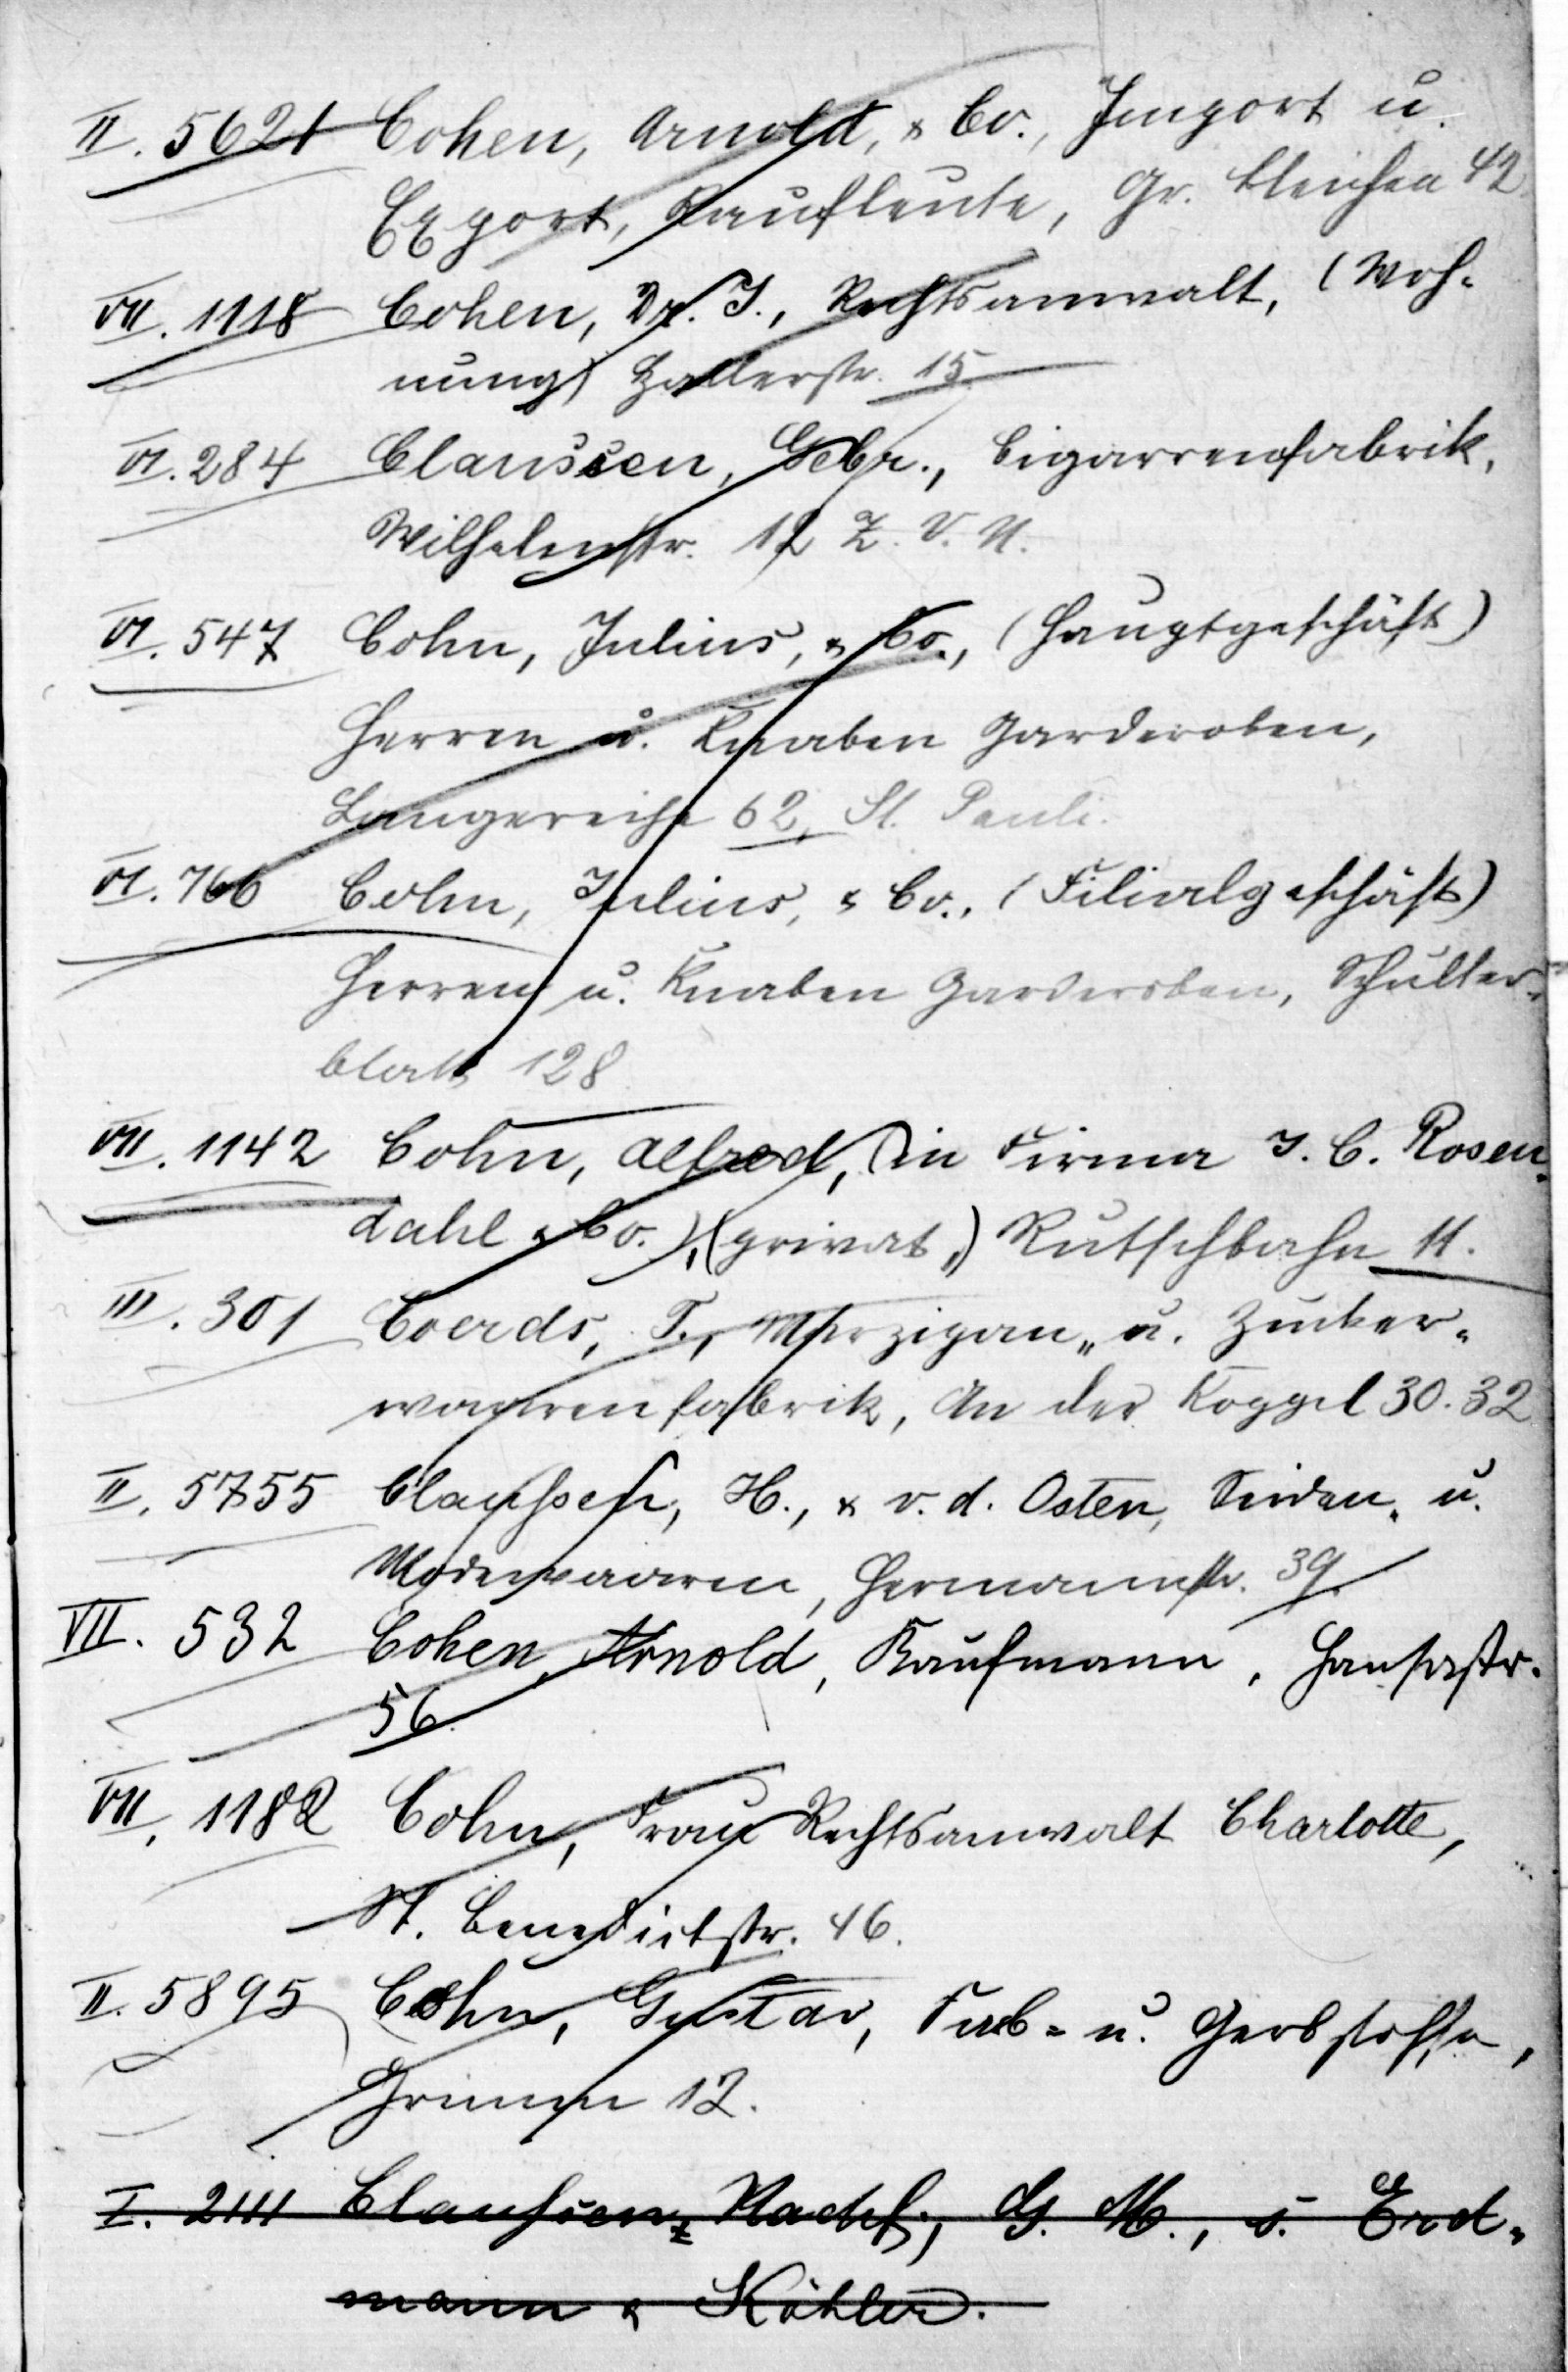 II. 5621 Cohen, Arnold, & Co., Import u.
Export, Kaufleute, Gr. Bleichen 42
VII. 1118 Cohen, Dr. J., Rechtsanwalt, (Woh-
nung) Hallerstr. 15
VI. 284 Claussen, Gebr., Cigarrenfabrik,
Wilhelmstr. 12 Z. V. N.
VI. 547 Cohn, Julius, & Co., (Hauptgeschäft)
Herren u. Knaben Garderoben,
Langereihe 62, St. Pauli.
VI. 766 Cohn, Julius, & Co., (Filialgeschäft)
Herren u. Knaben Garderoben, Schulter-
blatt 128
VII. 1142 Cohn, Alfred, (in Firma J. C. Rosen-
dahl & Co.), (privat,) Rutschbahn 11.
III. 301 Coerds, F., Marzipan- u. Zucker-
waarenfabrik, An der Koppel 30.32
II. 5755 Claussen, H., & v. d. Osten, Seiden- u.
Modewaaren, Hermannstr. 39
VII. 532 Cohen, Arnold, Kaufmann, Hansastr.
56.
VII. 1182 Cohn, Frau Rechtsanwalt Charlotte,
St. Benedictstr. 46.
II. 5895 Cohn, Gustav, Farb- u. Gerbstoffe,
Grimm 12.
I. 2111 Claussen, Nachf., G. M., s. Erd-
mann & Köhler.